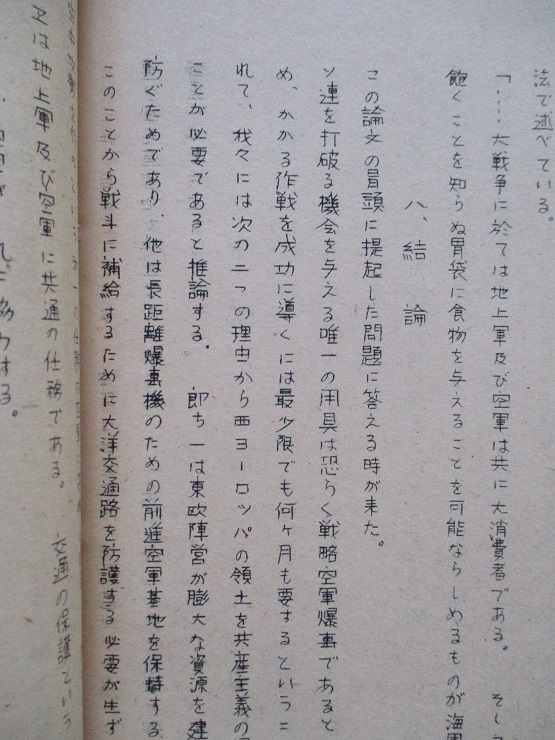 法で述べている。
「‥‥大戦争に於ては地上軍及び空軍は共に大消費者である。 そし
飽くことを知らぬ胃袋に食物を与えることを可能ならしめるものが海軍
八、結 論
この論文の冒頭に提起した問題に答える時が来た。
ソ連を打破る機会を与える唯一の用具は恐らく戦略空軍爆撃であると
め、かかる作戦を成功に導くには最少限でも何ヶ月も要するというこ
れて、我々には次の二つの理由から西ヨーロッパの領土を共産主義の
ことが必要であると推論する。 即ち一は東欧陣営が膨大な資源を建
防ぐためであり、他は長距離爆撃機のための前進空軍基地を保持する
このことから戦斗に補給するために大洋交通路を防護する必要が生ず
又は地上軍及び空軍に共通の仕務である。 交通の保護という
協力する。